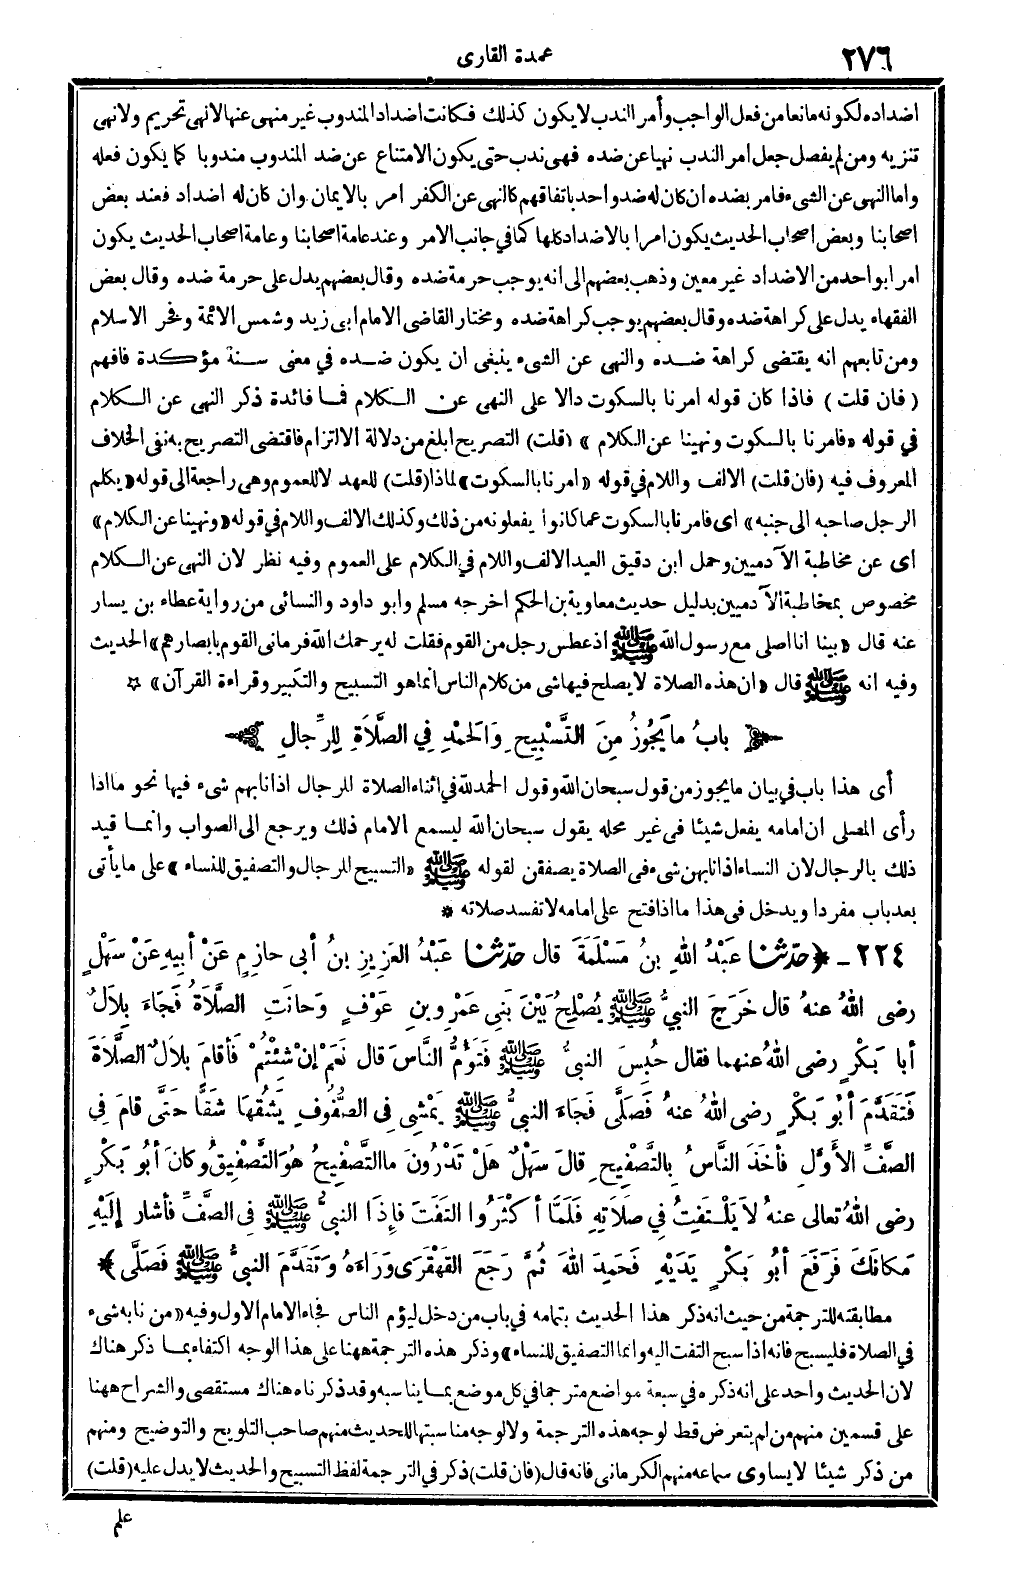 ٢٧٦
عمدة القارى
اضداده لكونه مانعا من فعل الواجب وأمر الندب لا يكون كذلك فكانت اضداد المندوب غير منهى عنها لا نهى تحريم ولا نهى
تنزيه ومن لم يفصل جعل امر الندب نهيا عن ضده فهى ندب حتى يكون الامتناع عن ضد المندوب مندوبا كما يكون فعله
واما النهى عن الشىء فامر بضده ان كان له ضد واحد باتفاقهم كالنهى عن الكفر امر بالايمان وان كان له اضداد فعند بعض
اصحابنا وبعض اصحاب الحديث يكون امرا بالاضداد كلها كما في جانب الامر وعند عامة اصحابنا وعامة اصحاب الحديث يكون
امرا بواحد من الاضداد غير معين وذهب بعضهم الى انه يوجب حرمة ضده وقال بعضهم يدل على حرمة ضده وقال بعض
الفقهاء يدل على كراهة ضده وقال بعضهم يوجب كراهة ضده ومختار القاضى الامام ابى زيد وشمس الائمة وفخر الاسلام
ومن تابعهم انه يقتضى كراهة ضده والنهى عن الشىء ينبغى ان يكون ضده في معنى سنة مؤكدة فافهم
(فان قلت) فاذا كان قوله امرنا بالسكوت دالا على النهى عن الكلام فما فائدة ذكر النهى عن الكلام
في قوله «فامرنا بالسكوت ونهينا عن الكلام» (قلت) التصريح ابلغ من دلالة الالتزام فاقتضى التصريح به نفى الخلاف
المعروف فيه (فان قلت) الالف واللام في قوله «امرنا بالسكوت» لماذا (قلت) للعهد لا للعموم وهى راجعة الى قوله «يكلم
الرجل صاحبه الى جنبه» اى فامرنا بالسكوت عما كانوا يفعلونه من ذلك وكذلك الالف واللام في قوله «ونهينا عن الكلام»
اى عن مخاطبة الآدميين وحمل ابن دقيق العيد الالف واللام في الكلام على العموم وفيه نظر لان النهى عن الكلام
مخصوص بمخاطبة الآدميين بدليل حديث معاوية بن الحكم اخرجه مسلم وابو داود والنسائى من رواية عطاء بن يسار
عنه قال «بينا انا اصلى مع رسول الله ﷺ اذ عطس رجل من القوم فقلت له يرحمك الله فرمانى القوم بابصارهم» الحديث
وفيه انه ﷺ قال «ان هذه الصلاة لا يصلح فيها شى من كلام الناس انما هو التسبيح والتكبير وقراءة القرآن» ☆
بابُ ما يَجُوزُ مِنَ التَّسْبِيحِ وَالحَمْدِ فِي الصَّلَاةِ لِلرِّجالِ
أى هذا باب في بيان ما يجوز من قول سبحان الله وقول الحمد لله في اثناء الصلاة للرجال اذا نابهم شىء فيها نحو ما اذا
رأى المصلى ان امامه يفعل شيئا فى غير محله يقول سبحان الله ليسمع الامام ذلك ويرجع الى الصواب وانما قيد
ذلك بالرجال لان النساء اذا نابهن شىء فى الصلاة يصفقن لقوله ﷺ «التسبيح للرجال والتصفيق للنساء» على ما يأتى
بعد باب مفردا ويدخل فى هذا ما اذا فتح على امامه لا تفسد صلاته *
٢٢٤ - ﴿حدّثنا عَبْدُ اللهِ بنُ مَسْلَمَةَ قال حدّثنا عَبْدُ العَزِيزِ بنُ أبى حازِمٍ عَنْ أبِيهِ عَنْ سَهْلٍ
رضى اللهُ عنهُ قال خَرَجَ النبيُّ ﷺ يُصْلِحُ بَيْنَ بَنِى عَمْرِو بنِ عَوْفٍ وَحانَتِ الصَّلَاةُ فَجَاءَ بِلَالٌ
أبا بَكْرٍ رضى اللهُ عنهما فقال حُبِسَ النبىُّ ﷺ فَتَؤُمُّ النَّاسَ قال نَعَمْ إنْ شِئْتُمْ فَأقامَ بِلَالٌ الصَّلَاةَ
فَتَقَدَّمَ أبُو بَكْرٍ رضى اللهُ عنهُ فَصَلَّى فَجَاءَ النبىُّ ﷺ يَمْشِى فِى الصُّفُوفِ يَشُقُّها شَقًّا حَتَّى قامَ فِي
الصَّفِّ الأَوَّلِ فأَخَذَ النَّاسُ بِالتَّصْفِيحِ قالَ سَهْلٌ هَلْ تَدْرُونَ ما التَّصْفِيحُ هُوَ التَّصْفِيقُ وكانَ أبُو بَكْرٍ
رضى اللهُ تعالى عنهُ لَا يَلْتَفِتُ فِي صَلَاتِهِ فَلَمَّا أكْثَرُوا التَفَتَ فإذَا النبىُّ ﷺ فِى الصَّفِّ فأشار إلَيْهِ
مَكانَكَ فَرَفَعَ أبُو بَكْرٍ يَدَيْهِ فَحَمِدَ اللهَ ثُمَّ رَجَعَ القَهْقَرَى وَرَاءَهُ وَتَقَدَّمَ النبىُّ ﷺ فَصَلَّى﴾ *
مطابقته للترجمة من حيث انه ذكر هذا الحديث بتمامه في باب من دخل ليؤم الناس فجاء الامام الاول وفيه «من نابه شىء
في الصلاة فليسبح فانه اذا سبح التفت اليه وانما التصفيق للنساء» وذكر هذه الترجمة ههنا على هذا الوجه اكتفاء بما ذكر هناك
لان الحديث واحد على انه ذكره في سبعة مواضع مترجما في كل موضع بما يناسبه وقد ذكرناه هناك مستقصى والشراح ههنا
على قسمين منهم من لم يتعرض قط لوجه هذه الترجمة ولا لوجه مناسبتها للحديث منهم صاحب التلويح والتوضيح ومنهم
من ذكر شيئا لا يساوى سماعه منهم الكرمانى فانه قال (فان قلت) ذكر في الترجمة لفظ التسبيح والحديث لا يدل عليه (قلت)
علم